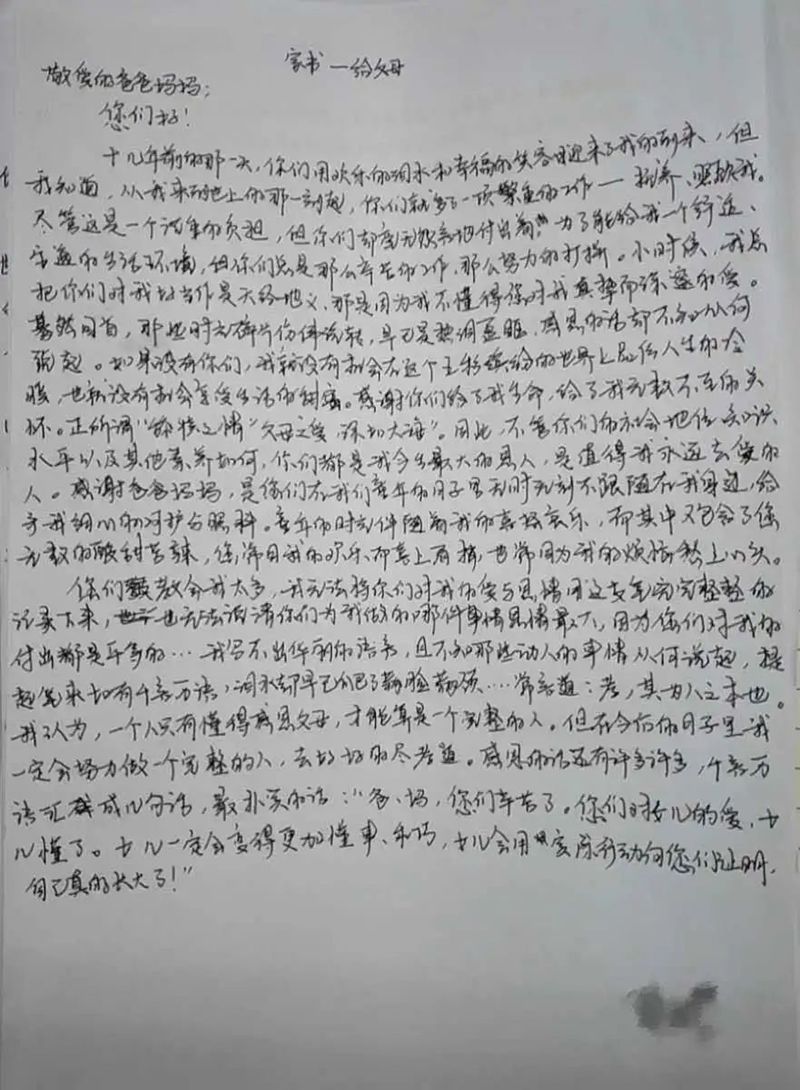 家书—给父母
敬爱的爸爸妈妈：
您们好！
十几年前的那一天，你们用欢乐的泪水和幸福的笑容迎来了我的到来，但
我知道，从我来到地上的那一刻起，你们就多了一项繁重的工作—抚养、照顾我。
尽管这是一个沉重的负担，但你们却毫无怨言地付出着，为了能给我一个舒适、
安逸的生活环境，但你们总是那么辛苦的工作，那么努力的打拼。小时候，我总
把你们对我好当作是天经地义，那是因为我不懂得您对我真挚而深邃的爱。
蓦然回首，那些时光碎片仿佛流转，早已是热泪盈眶，感恩的话都不知从何
说起。如果没有你们，我就没有机会在这个五彩缤纷的世界上品味人生的冷
暖，也就没有机会享受生活的甜蜜。感谢你们给了我生命，给了我无数不至的关
怀。正所谓“舐犊之情”“父母之爱，深如大海”。因此，不管你们的社会地位、知识
水平以及其他素养如何，你们都是我今生最大的恩人，是值得我永远去爱的
人。感谢爸爸妈妈，是您们在我们童年的日子里无时无刻不跟随在我身边，给
予我细心的呵护与照料。童年的时光伴随着我的喜怒哀乐，而其中又包含了您
无数的酸甜苦辣，您常因我的欢乐而喜上眉梢，也常因为我的烦恼愁上心头。
你们教会我太多，我无法将你们对我的爱与恩情用这支笔完完整整的
记录下来，也无法说清你们为我做的哪件事情恩情最大，因为您们对我的
付出都是平等的…我写不出华丽的语言，且不知那些动人的事情从何说起，提
起笔来却有千言万语，泪水却早已的巴了满脸满颈…常言道：孝，其为人之本也。
我认为，一个人只有懂得感恩父母，才能算是一个完整的人。但在今后的日子里我
一定会努力做一个完整的人，去好好的尽孝道。感恩的话还有许多许多，千言万
语汇成几句话，最朴实的话：“爸、妈，您们辛苦了。您们对女儿的爱，女
儿懂了。女儿一定会变得更加懂事、乖巧，女儿会用实际行动向您们证明，
自己真的长大了！”